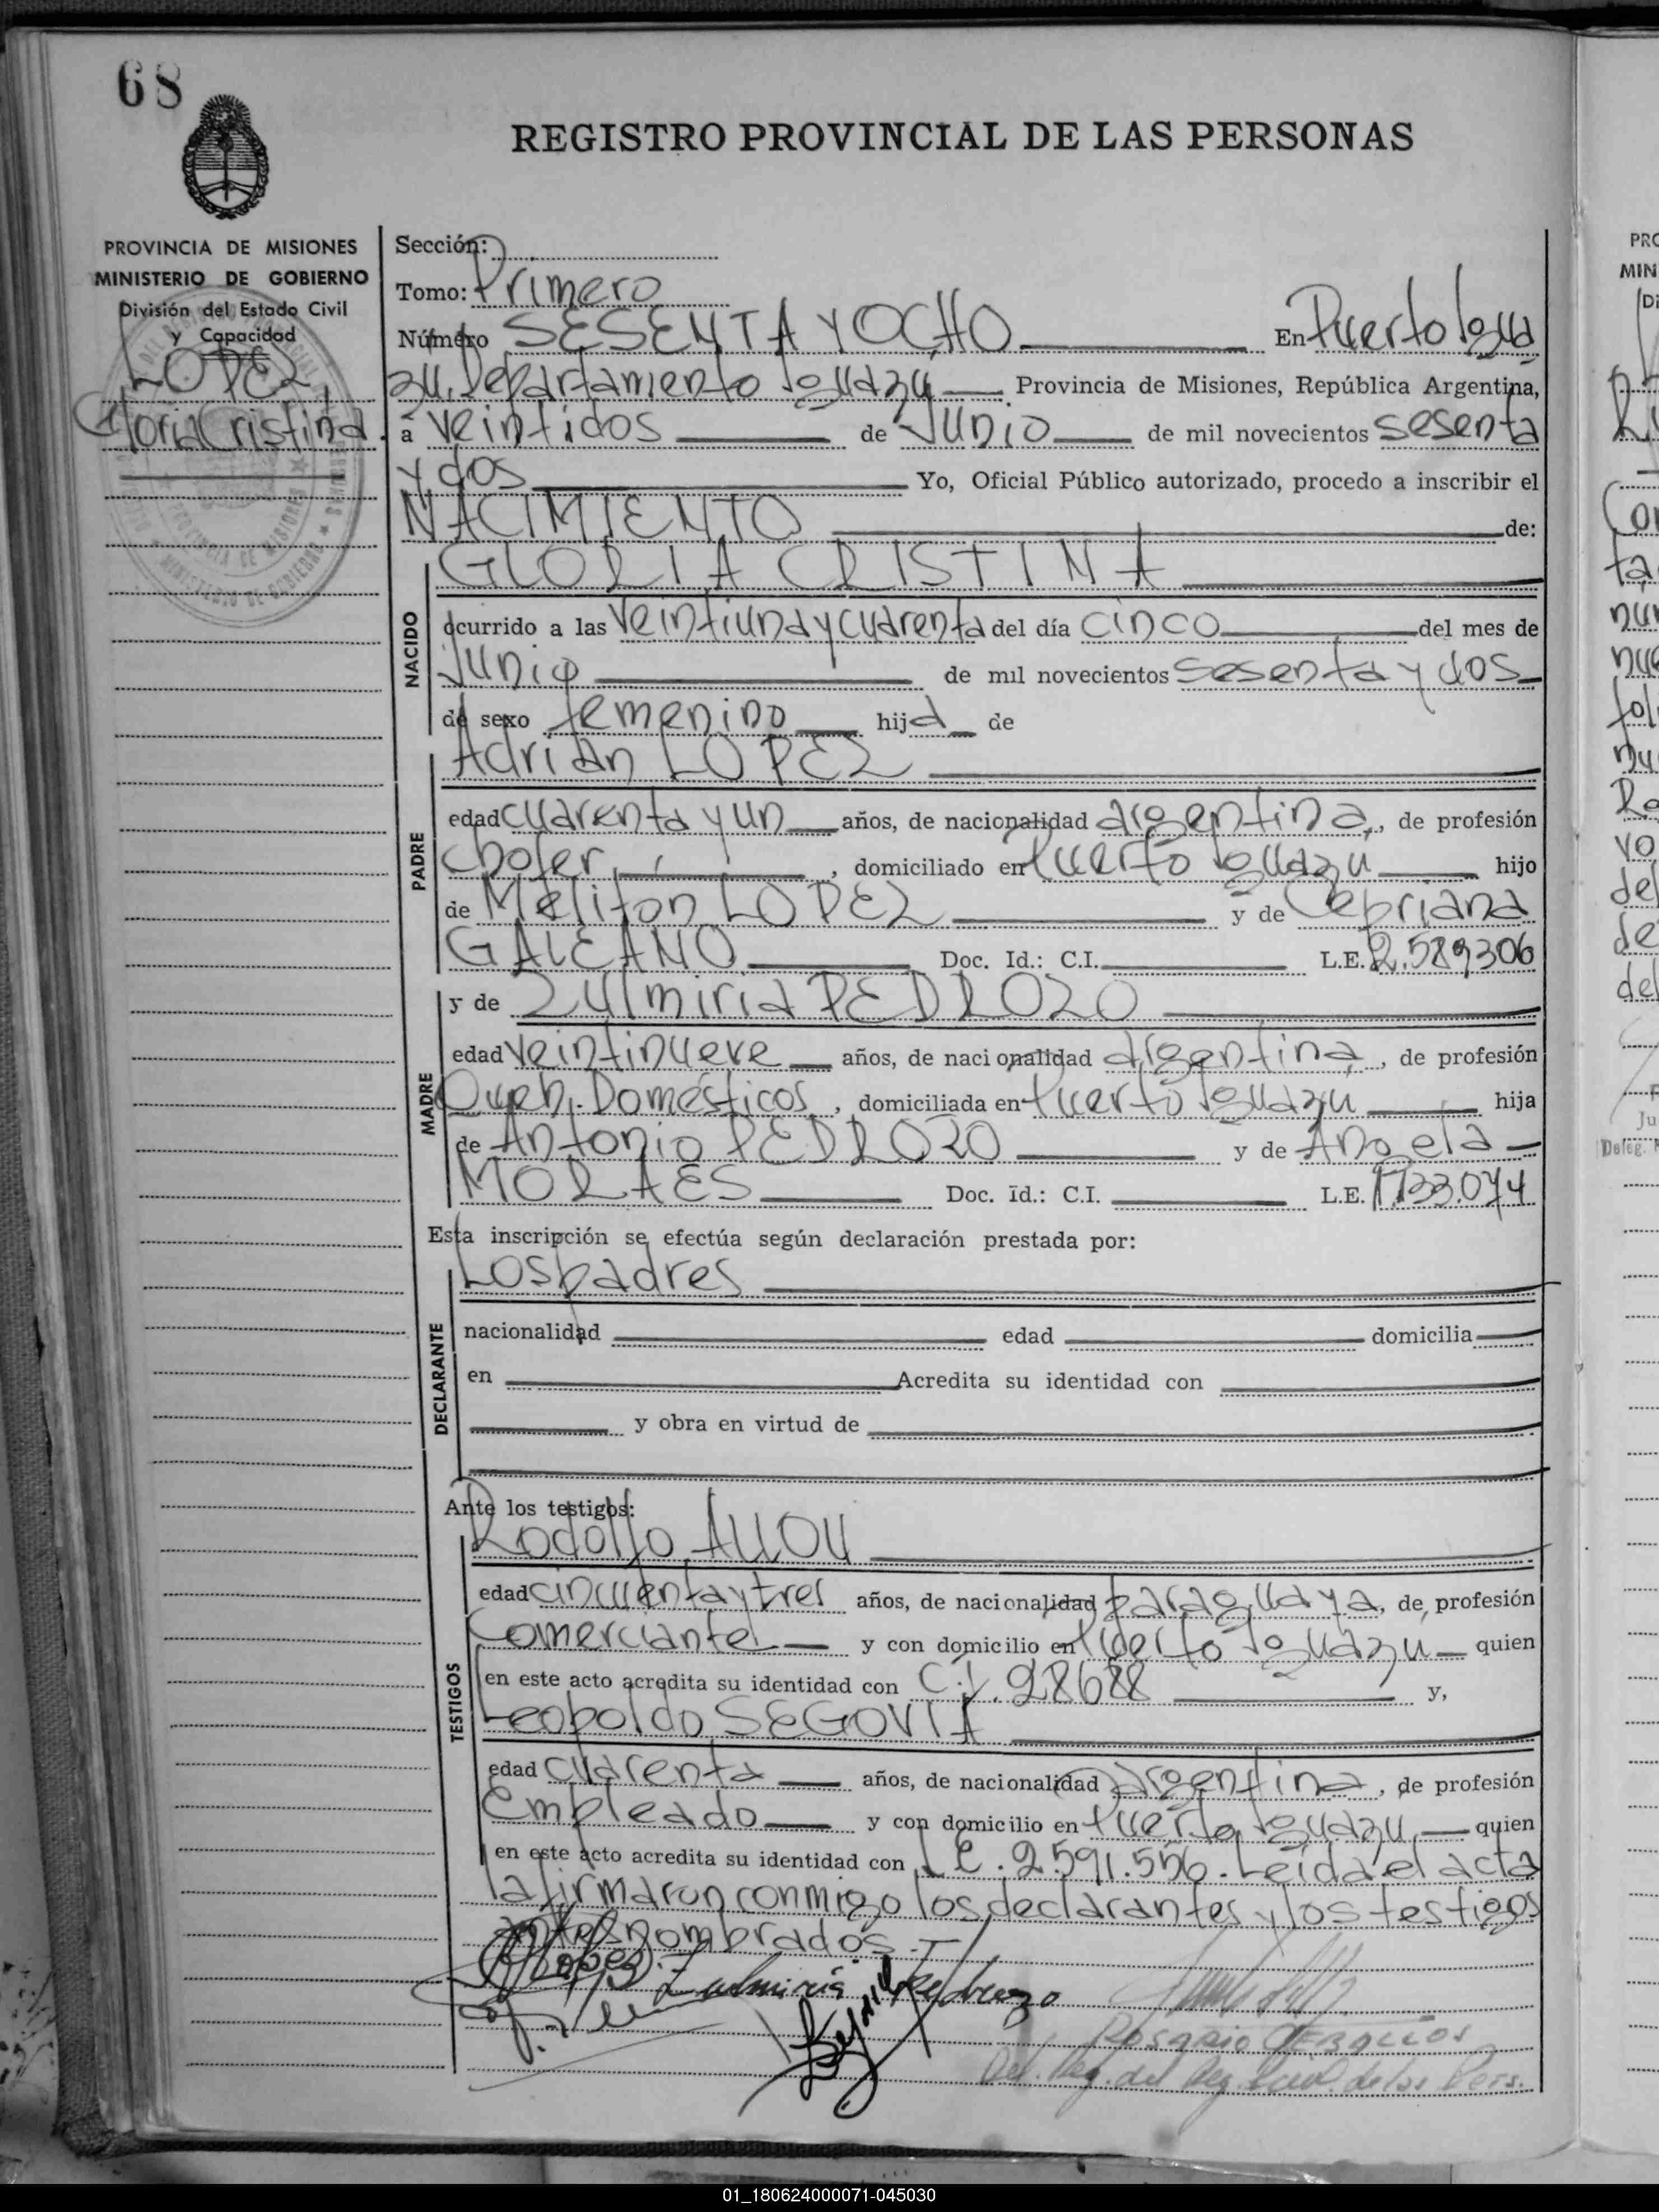 68
REGISTRO PROVINCIAL DE LAS PERSONAS
PROVINCIA DE MISIONES
MINISTERIO DE GOBIERNO
División del Estado Civil
y Capacidad
LOPEZ
Gloria Cristina.
Sección:
Tomo: Primero
Número SESENTA Y OCHO En Puerto Igua
zu, Departamento Iguazu Provincia de Misiones, República Argentina,
a veintidos de Junio de mil novecientos sesenta
y dos Yo, Oficial Público autorizado, procedo a inscribir el
NACIMIENTO de:
NACIDO
GLORIA CRISTINA
ocurrido a las veintiuna y cuarenta del día cinco del mes de
Junio de mil novecientos sesenta y dos
de sexo femenino hija de
PADRE
Adrian LOPEZ
edad cuarenta y un años, de nacionalidad argentina, de profesión
chofer, domiciliado en Puerto Iguazu hijo
de Meliton LOPEZ y de Cepriana
GALEANO Doc. Id.: C.I. L.E. 2.589306
MADRE
y de Zulmiria PEDROZO
edad veintinueve años, de nacionalidad argentina, de profesión
Queh. Domésticos, domiciliada en Puerto Iguazu hija
de Antonio PEDROZO y de Angela
MORAES Doc. Id.: C.I. L.E. 1.733.074
Esta inscripción se efectúa según declaración prestada por:
DECLARANTE
Los padres
nacionalidad edad domicilia
en Acredita su identidad con
y obra en virtud de
Ante los testigos:
TESTIGOS
Rodolfo
edad cincuenta y tres años, de nacionalidad paraguaya, de profesión
Comerciante y con domicilio en Puerto Iguazu quien
en este acto acredita su identidad con C.I. 28688 y,
Leopoldo SEGOVIA
edad cuarenta años, de nacionalidad argentina, de profesión
Empleado y con domicilio en Puerto Iguazu quien
en este acto acredita su identidad con L.E. 2.591.556. Leida el acta
la firmaron conmigo los declarantes y los testigos
antes nombrados.-
Lopez Zulmiria Pedrozo
ROSARIO CEBALLOS
Del. Reg. del Reg. de las Pers.
01_180624000071-045030